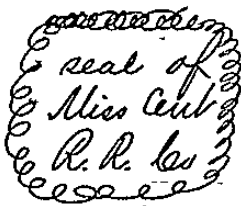 seal of
Miss Cent
R. R. Co